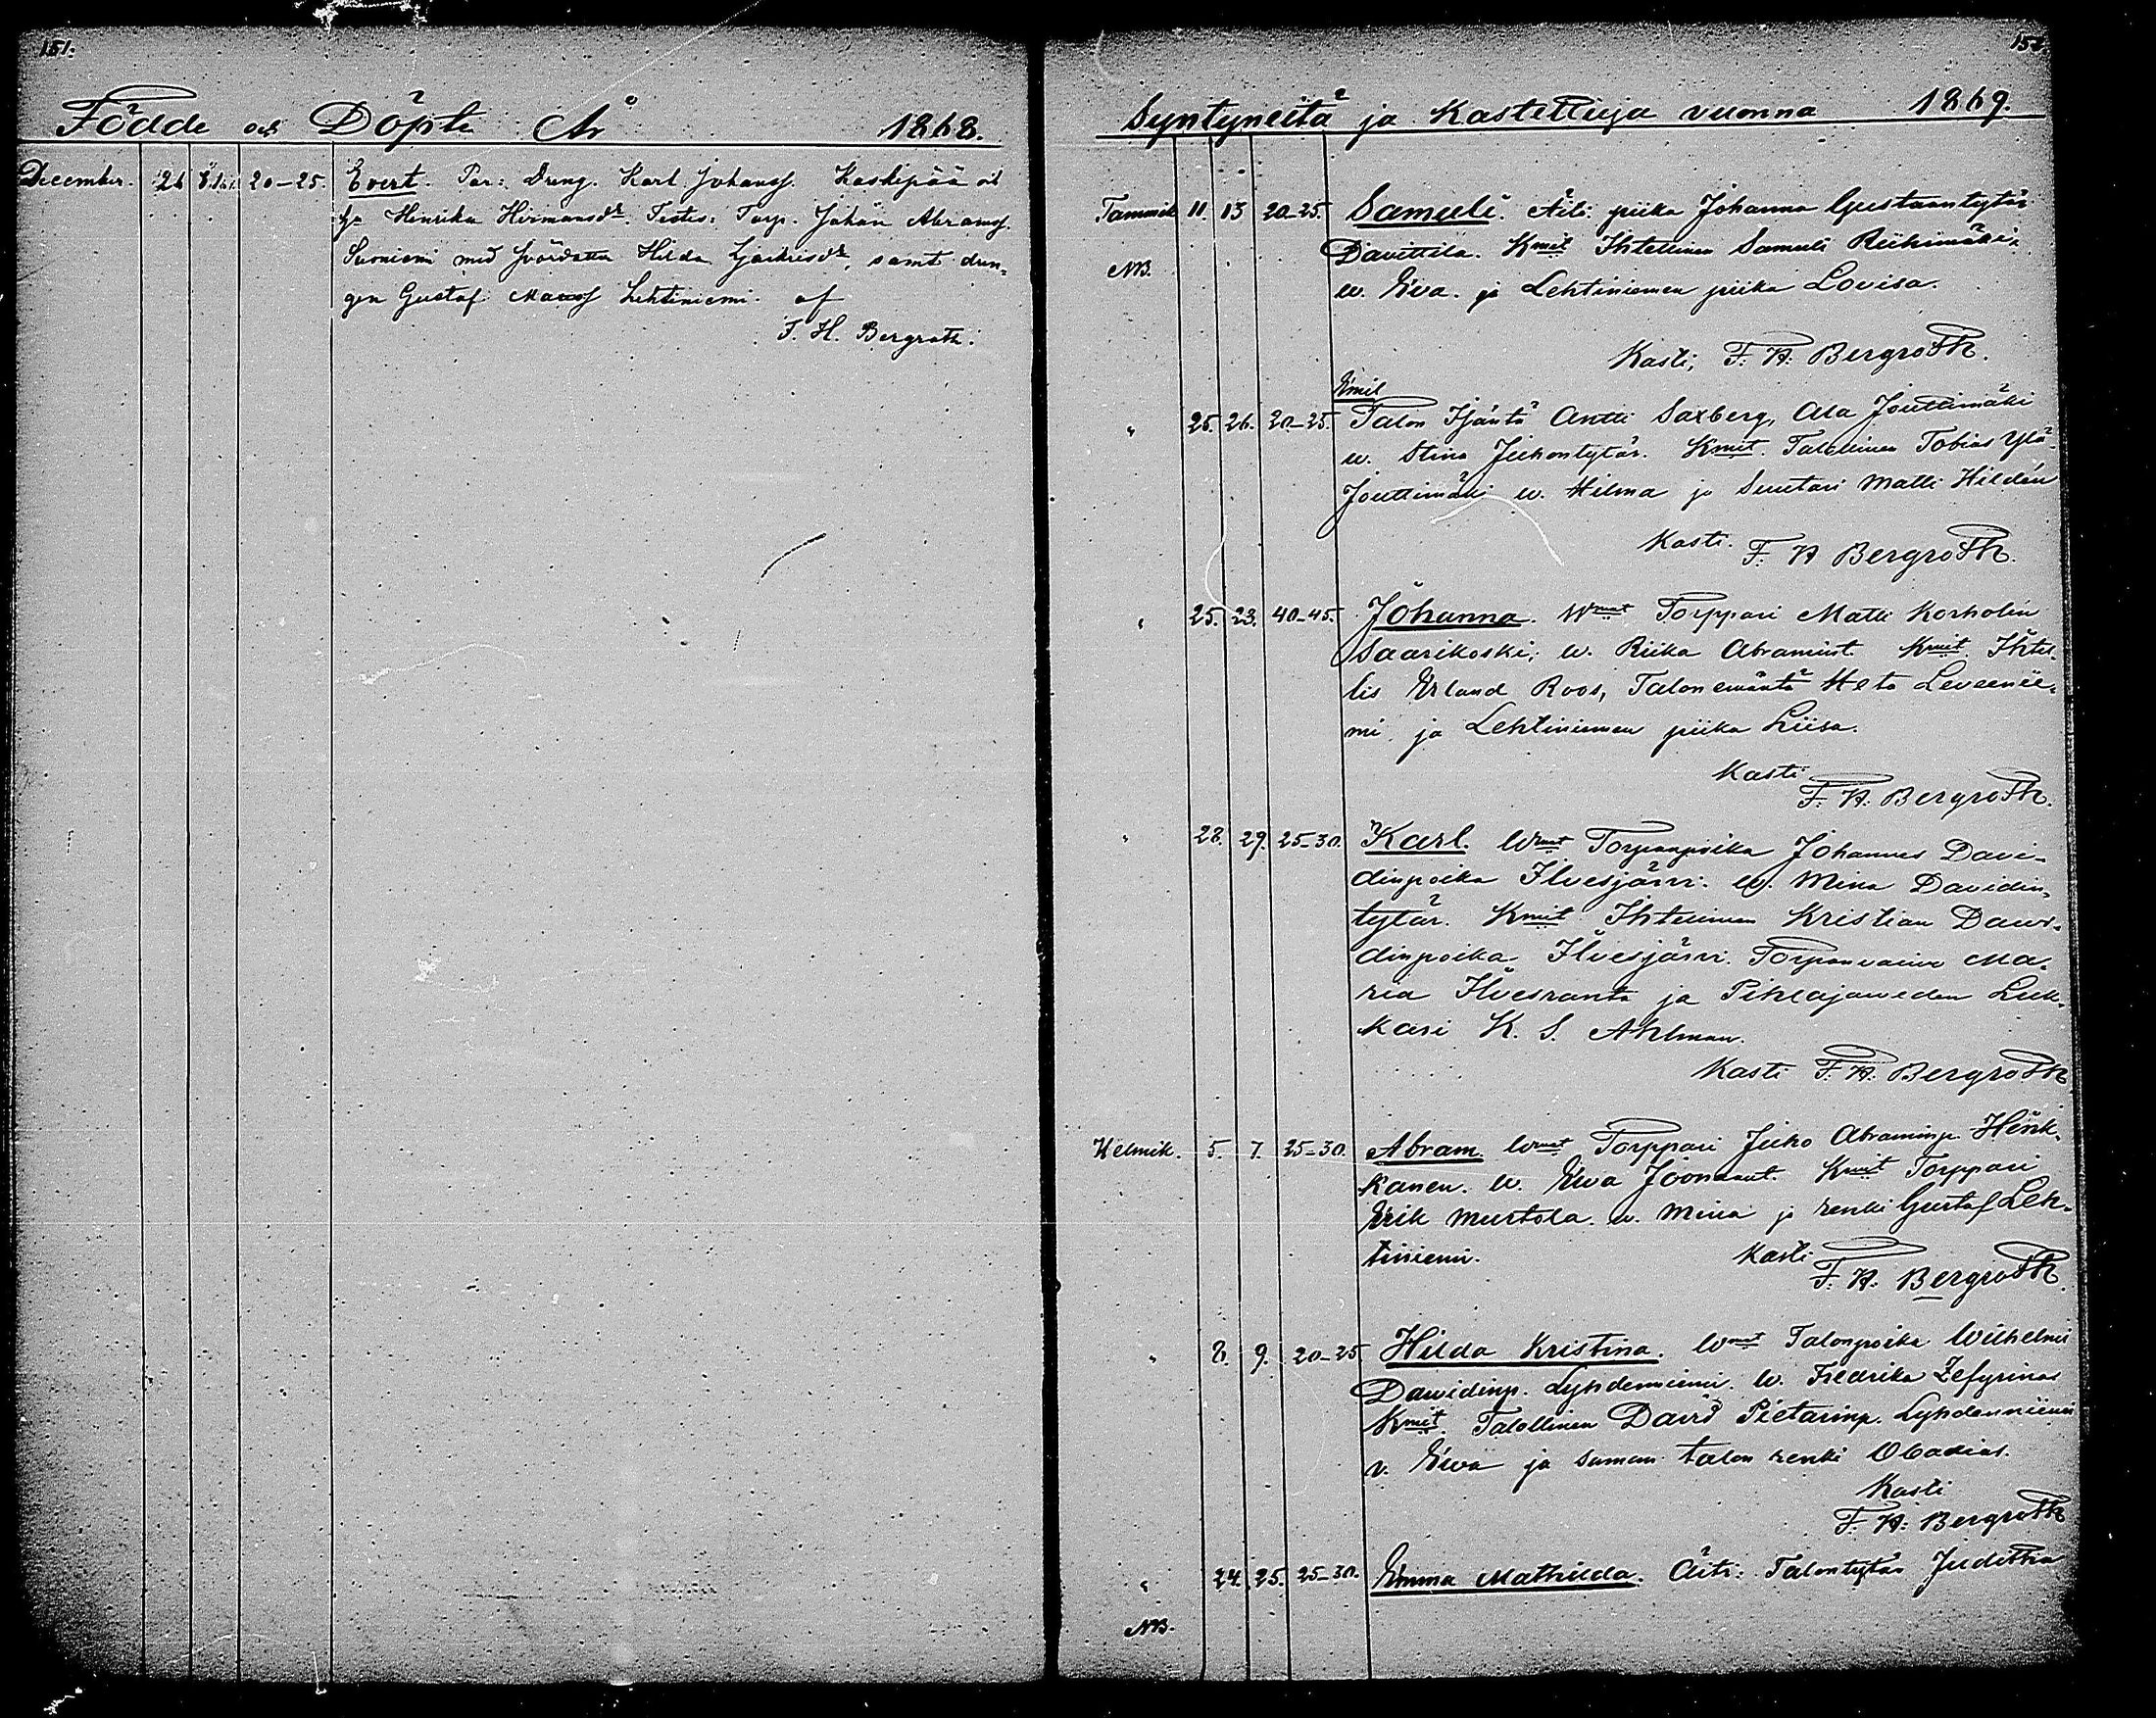 151.
Födde och Döpte År 1868.
December. 26 20-25. Evert. Par: Dreng. Karl Johanss. Koskipää och
h. Henrika Hermansdr. Testes: Torp. Johan Abramss.
Suoniemi med Hilda samt dren-
gen Gustaf Lehtiniemi. af
F. H. Bergroth.
152.
Syntyneitä ja Kastettuja vuonna 1869.
Tammik. 11. 13 20-25. Samuli. Äiti: piika Johanna Gustaantytär
Davittila. Kmit Ihtellinen Samuli Riihimäki,
NB.
w. Ewa. ja Lehtiniemen piika Lovisa.
Kasti, F. H. Bergroth.
Emil
" 25. 26. 20-25. Talon Isäntä Antti Saxberg, Ala Jouttimäki
w. Stina Juhontytär. Kmit. Talollinen Tobias Ylä-
Jouttimäki w. Hilma ja Suutari Matti Hildén
Kasti. F. H Bergroth.
" 25. 23. 40-45. Johanna. Wmat Torppari Matti Korholin
Saarikoski, w. Riika Abramint. Kmit. Ihtel-
lis Erland Roos, Talon emäntä Heta Leveenie-
mi, ja Lehtiniemen piika Liisa.
Kasti
F. H. Bergroth.
" 28. 29. 25-30. Karl. Wmat Torpanpoika Johannes Davi-
dinpoika Ilvesjärvi. w. Mina Davidin-
tytär. Kmit Ihtellinen Kristian Davi-
dinpoika Ilvesjärvi. Torpanvaimo Ma-
ria Ilvesranta ja Pihlajaweden Luk-
kari K. S. Ahlman.
Kasti F. H. Bergroth
Helmik. 5. 7. 25-30. Abram. Wmat Torppari Juho Abraminp. Hänk-
kanen. w. Ewa Joonaant. Kmit Torppari
Erik Murtola. w. Miina ja renki Gustaf Leh-
tiniemi. Kasti
F. H. Bergroth.
" 8. 9. 20-25 Hilda Kristina. Wmat Talonpoika Wilhelmi
Dawidinp. Lyhdenniemi. w. Fredrika Zefyrinas
Kmit. Talollinen David Pietarinp. Lyhdenniemi
v. Ewa ja saman talon renki Obadias.
Kasti
F. H. Bergroth
" 24. 25. 25-30. Emma Mathilda. Äiti: Talontytär Judittha
NB.